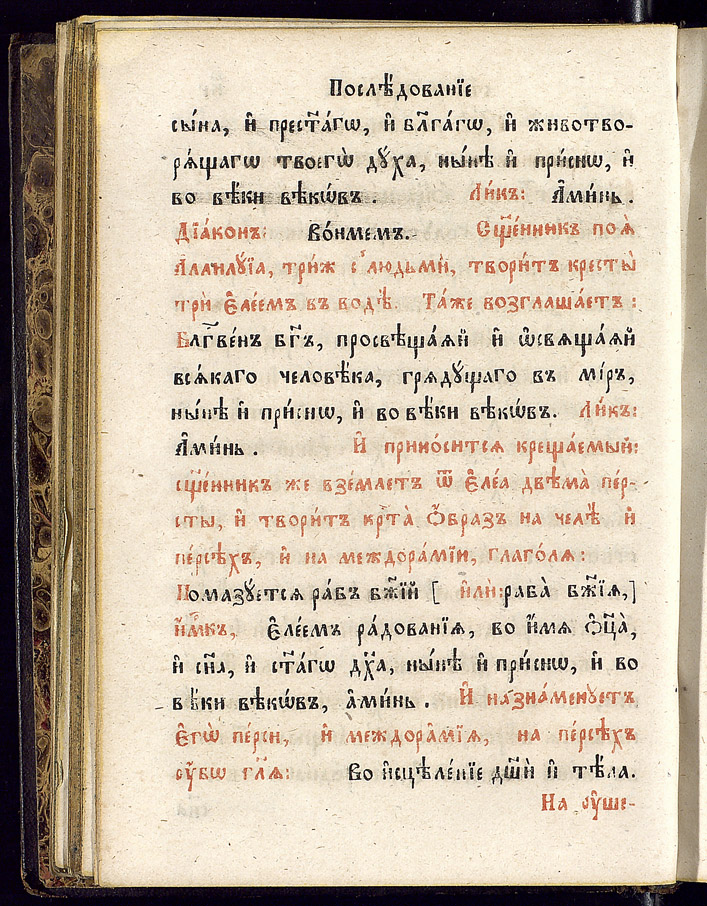 Послѣ́дованїе
сы́на, и҆ прест҃а́гѡ, и҆ бл҃га́гѡ, и҆ животво-
рѧ́щагѡ твоегѡ̀ дꙋ́ха, ны́нѣ и҆ при́снѡ, и҆
во вѣ́ки вѣкѡ́въ. Ли́къ: А҆ми́нь.
Дїа́конъ: Во́нмемъ. Сщ҃е́нникъ поѧ̀
А҆ллилꙋ́їа, три́ж с̾ людьмѝ, твори́тъ кресты̀
трѝ є҆ле́емъ въ водѣ̀. Та́же возглаша́етъ:
Бл҃гве́нъ бг҃ъ, просвѣща́ѧй и҆ ѡ҆свѧща́ѧй
всѧ́каго человѣ́ка, грѧдꙋ́щаго въ мі́ръ,
ны́нѣ и҆ при́снѡ, и҆ во вѣ́ки вѣкѡ́въ. Ли́къ:
А҆ми́нь. И҆ прино́ситсѧ креща́емый:
сщ҃е́нникъ же взе́млетъ ѿ є҆ле́а двѣма̀ пе́р-
сты, и҆ твори́тъ крт҃а̀ ѻ҆́бразъ на челѣ̀ и҆
пе́рсѣхъ, и҆ на междора́мїи, глаго́лѧ:
Помазꙋ́етсѧ ра́бъ бж҃їй [ и҆лѝ: раба̀ бж҃їѧ,]
и҆́м҃къ, є҆ле́емъ ра́дованїѧ, во и҆́мѧ ѻ҆ц҃а̀,
и҆ сн҃а, и҆ ст҃а́гѡ дх҃а, ны́нѣ и҆ при́снѡ, и҆ во
вѣ́ки вѣкѡ́въ, а҆ми́нь. И҆ назна́менꙋетъ
є҆гѡ̀ пе́рси, и҆ междора҆́мїѧ, на пе́рсѣхъ
ᲂу҆́бѡ гл҃ѧ: Во и҆сцѣле́нїе дш҃ѝ и҆ тѣ́ла.
На ᲂу҆ше-